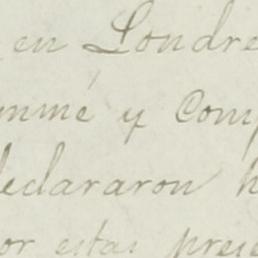 en Londre
mmé y Comp
declararon h
or estas prese